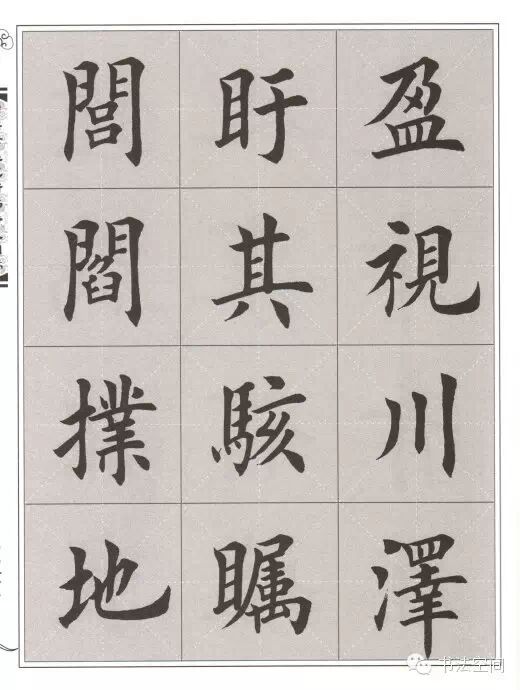 盈視川澤
盱其駭矚
閭閻撲地
书法空间